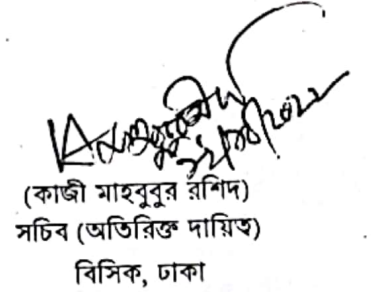 (কাজী মাহবুবুর রশিদ)
সচিব (অতিরিক্ত দায়িত্ব)
বিসিক, ঢাকা